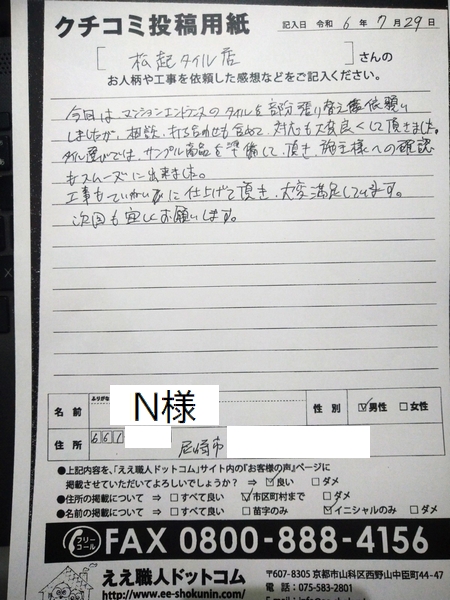 クチコミ投稿用紙
記入日 令和 6 年 7 月 29 日
[ 松起タイル店 ] さんの
お人柄や工事を依頼した感想などをご記入ください。
今回は、マンションエントランスのタイルを部分張り替え依頼い
しましたが、相談、打ち合わせも含めて、対応も大変良くして頂きました。
タイル選びでは、サンプル商品を準備して頂き、施主様への確認
もスムーズに出来ました。
工事もていねいに仕上げて頂き、大変満足しています。
次回も宜しくお願いします。
ふりがな
名前 N様 性別 ☑男性 □女性
住所 661 尼崎市
●上記内容を、「ええ職人ドットコム」サイト内の「お客様の声」ページに
掲載させていただいてよろしいでしょうか? ⇒ ☑良い □ダメ
●住所の掲載について ⇒ □すべて良い ☑市区町村まで □ダメ
●名前の掲載について ⇒ □すべて良い □苗字のみ ☑イニシャルのみ □ダメ
フリーコール FAX 0800-888-4156
ええ職人ドットコム
http://www.ee-shokunin.com/
〒607-8305 京都市山科区西野山中臣町44-47
電話:075-583-2801